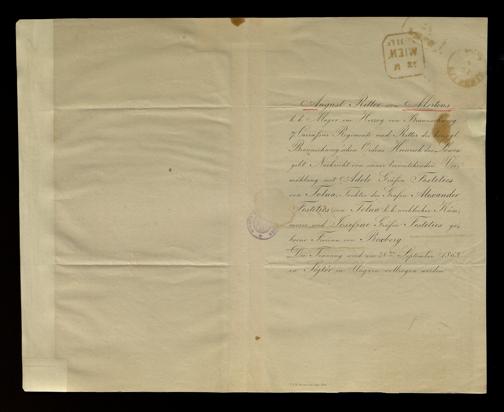 August Ritter von Mertens
k. k. Major im Herzog von Braunschweig
7. Cuirassier Regimente und Ritter des herzogl.
Braunschweig'schen Ordens Heinrich des Löwen
gibt Nachricht von seiner bevorstehenden Ver-
mählung mit Adele Gräfin Festetics
von Tolna, Tochter des Grafen Alexander
Festetics von Tolna k. k. wirklicher Käm-
merer und Josefine Gräfin Festetics ge-
borne Freiin von Boxberg.
Die Trauung wird am 28ten September 1863
in Ságtór in Ungarn vollzogen werden.
WIEN